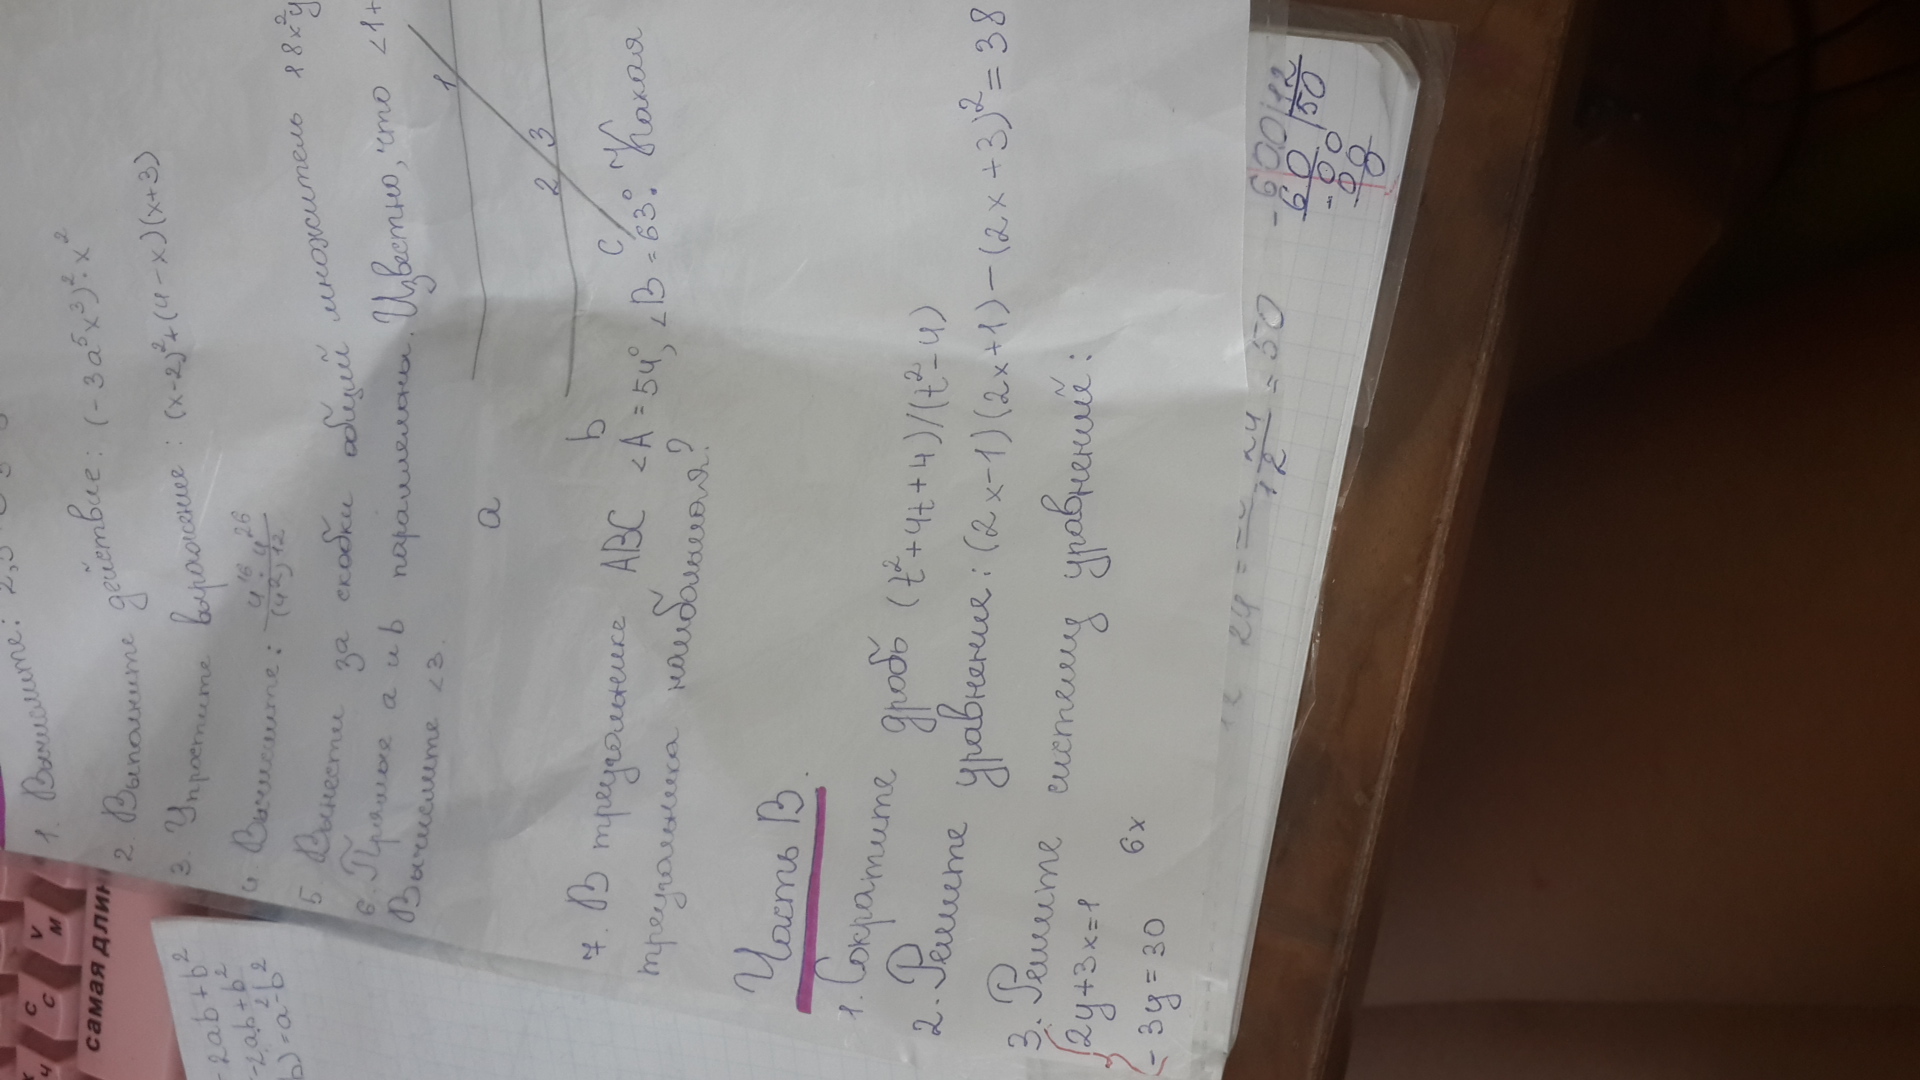 1. Вычислите: 2,5
2. Выполните действие: (-3a⁵x³)²·x²
3. Упростите выражение: (x-2)²+(4-x)(x+3)
4. Вычислите: 4¹⁶·4²⁶/(4²)¹²
5 Вынести за скобки общий множитель 18x²y
6. Прямые a и b параллельны. Известно, что <1+
Вычислите <3.
a
b
c
1
2 3
7. В треугольнике ABC <A=54°, <B=63°. Какая
треугольника наибольшая?
Часть В.
1. Сократите дробь (t²+4t+4)/(t²-4)
2. Решите уравнение: (2x-1)(2x+1)-(2x+3)²=38
3. Решите систему уравнений:
{2y+3x=1
6x
-3y=30
-2ab+b²
-2ab+b²
b)=a²-b²
самая длин
V М
C С
Ч
24 = 24/12 = 50
-600|12
60 |50
-00
00
0